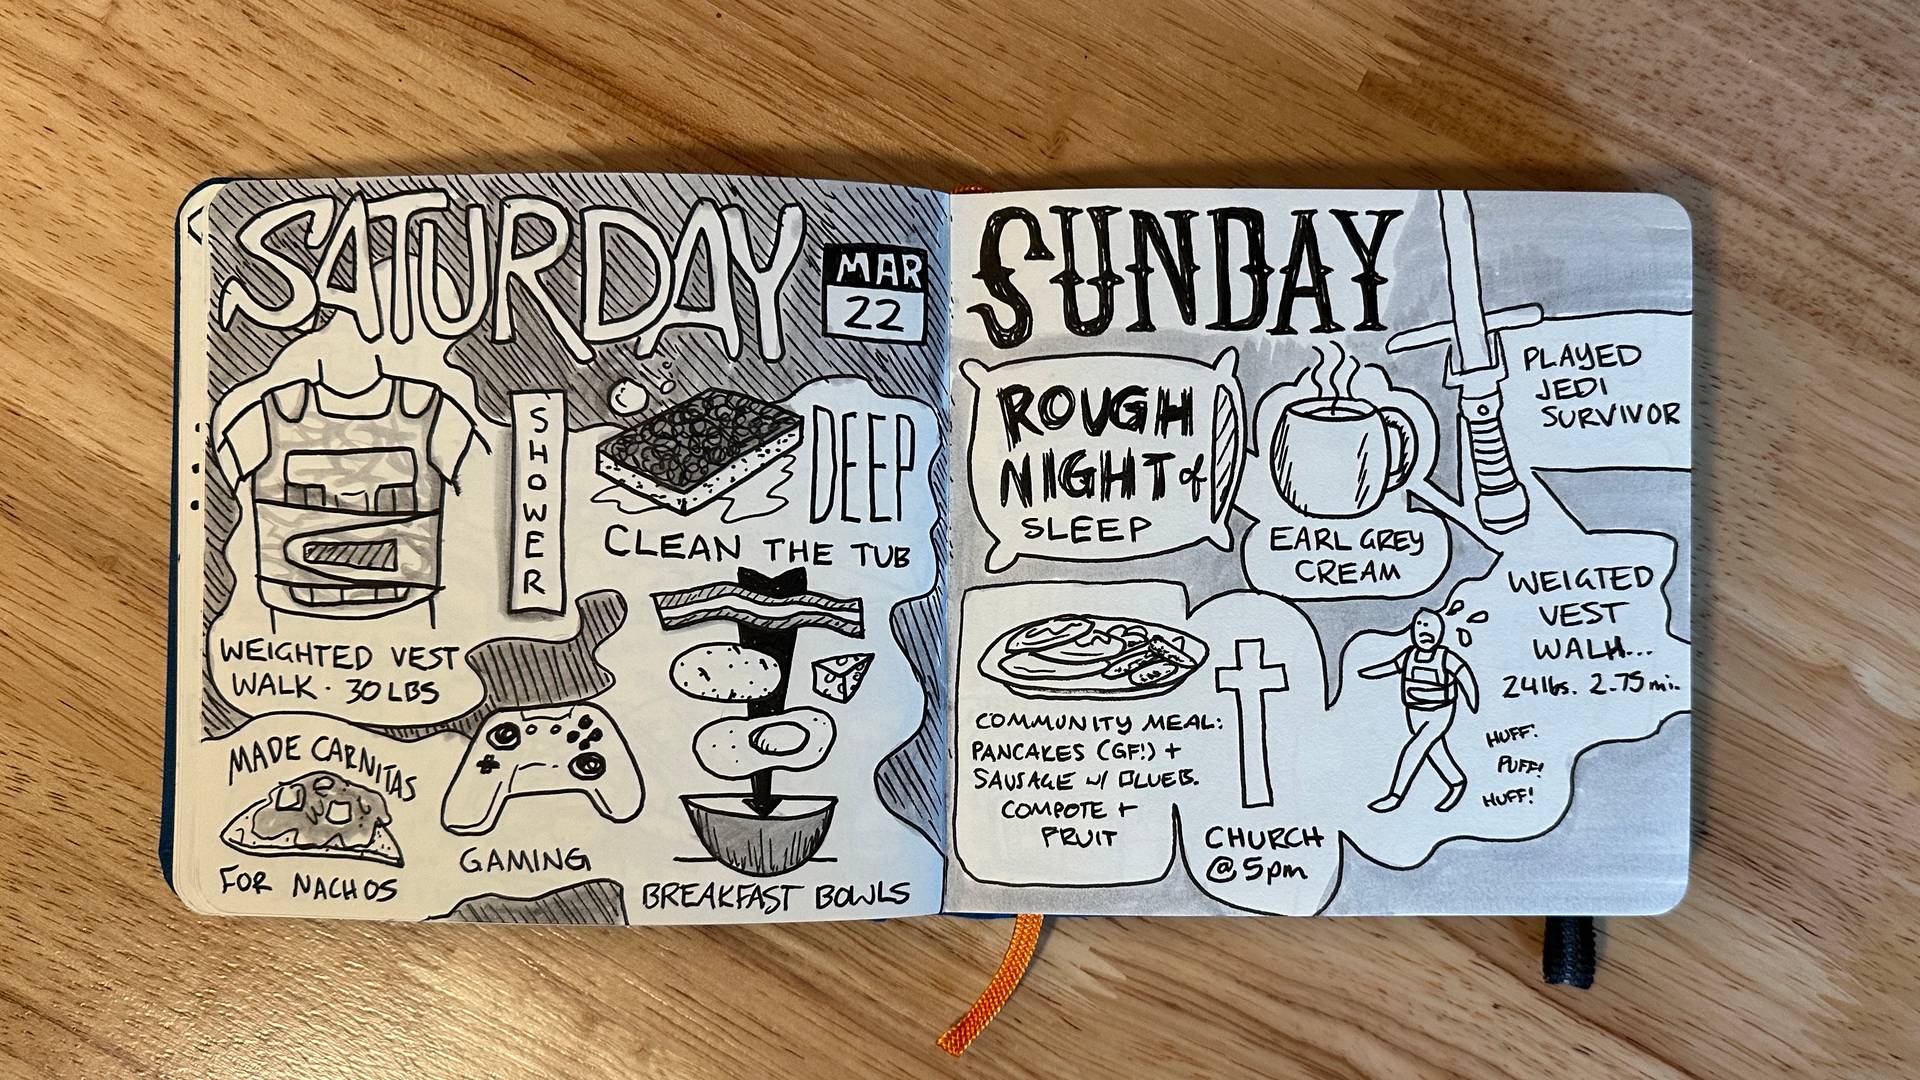 SATURDAY
MAR
22
WEIGHTED VEST
WALK · 30 LBS
SHOWER
DEEP
CLEAN THE TUB
MADE CARNITAS
FOR NACHOS
GAMING
BREAKFAST BOWLS
SUNDAY
ROUGH
NIGHT of
SLEEP
EARL GREY
CREAM
PLAYED
JEDI
SURVIVOR
COMMUNITY MEAL:
PANCAKES (GF!) +
SAUSAGE w/ BLUEB.
COMPOTE +
FRUIT
CHURCH
@ 5pm
WEIGTED
VEST
WALK...
24 lbs. 2.75 mi.
HUFF!
PUFF!
HUFF!